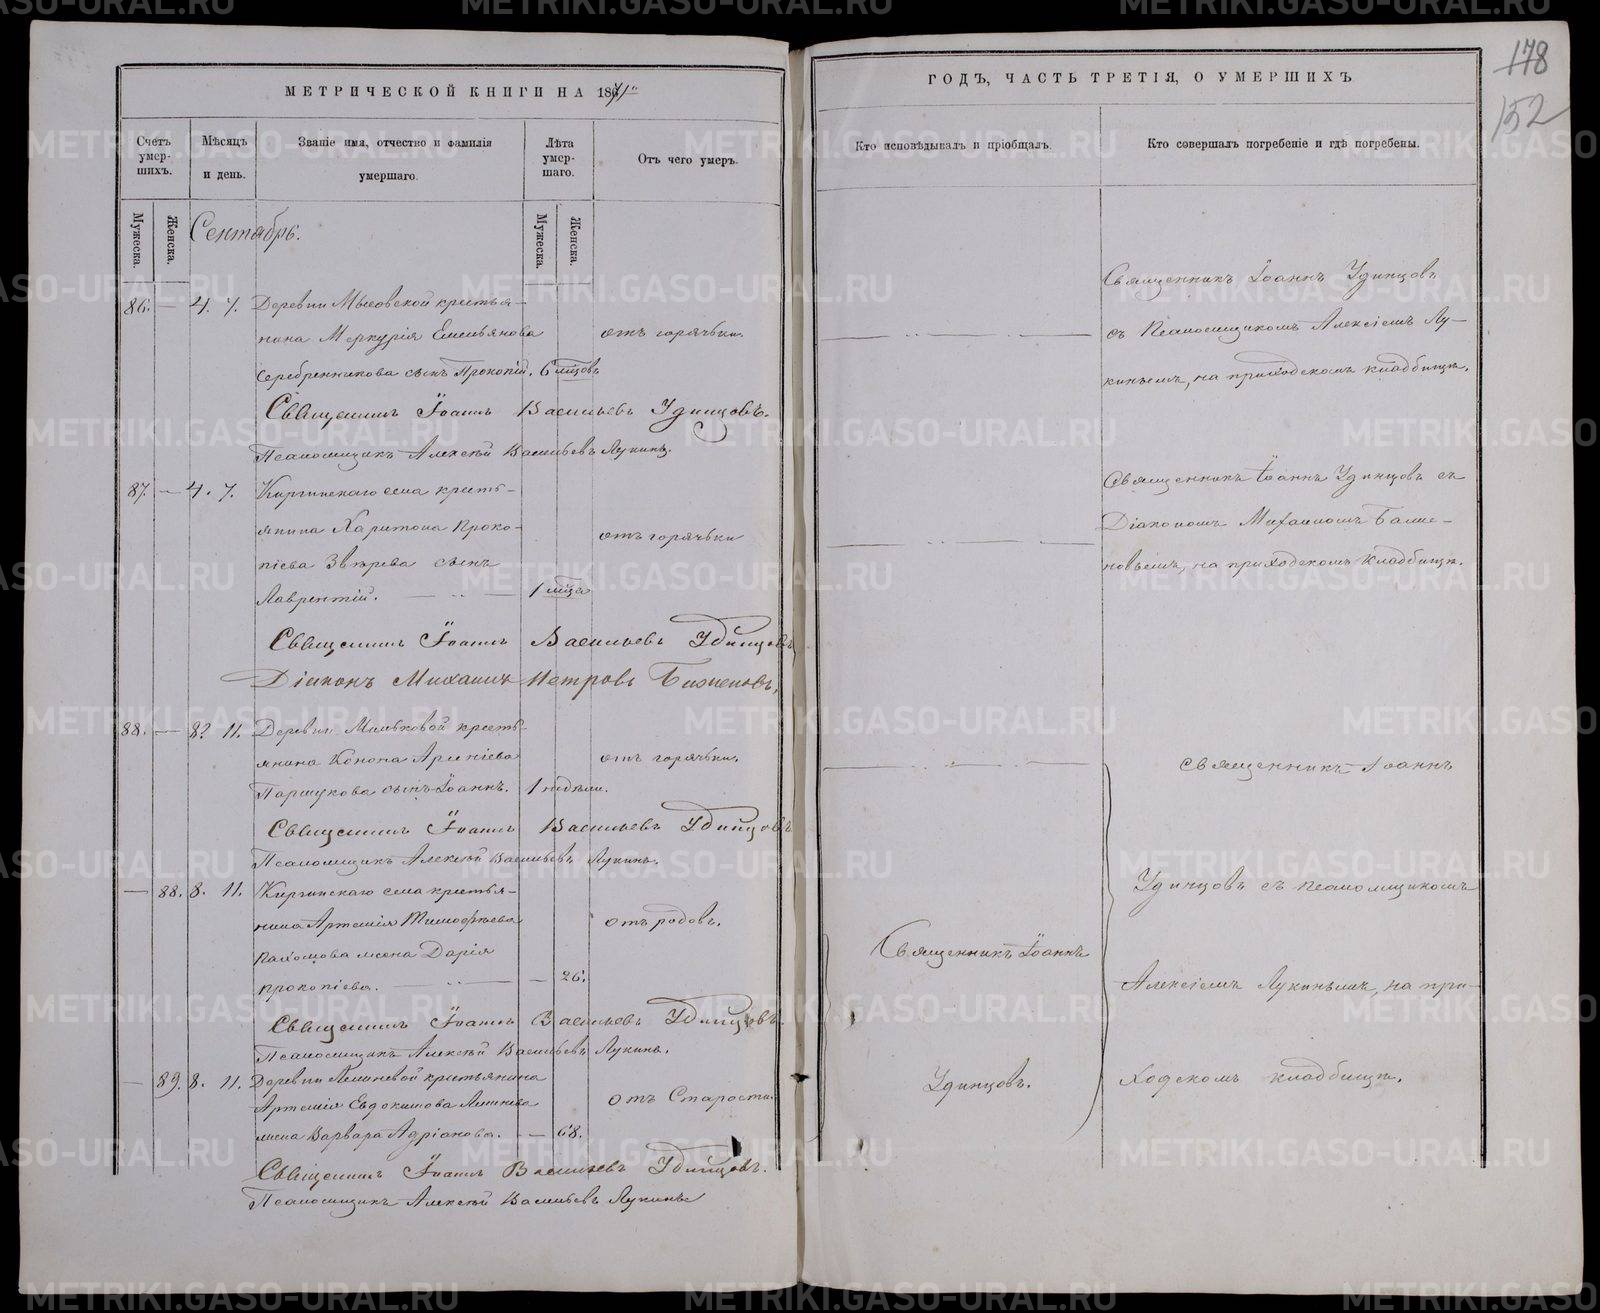 МЕТРИЧЕСКОЙ КНИГИ НА 1871й
ГОДЪ, ЧАСТЬ ТРЕТІЯ, О УМЕРШИХЪ
178
152
Счетъ умер-шихъ.
Мѣсяцъ и день.
Званіе имя, отчество и фамилія умершаго.
Лѣта умер-шаго.
Отъ чего умеръ.
Кто исповѣдывалъ и пріобщалъ.
Кто совершалъ погребеніе и гдѣ погребены.
Мужеска.
Женска.
Мужеска.
Женска.
Сентябрь.
86. — 4. 7. Деревни Мысовской крестья-
нина Меркурія Емельянова
отъ горячьки.
Серебренникова сынъ Прокопій. 6 мѣсцовъ
Священникъ Іоаннъ Васильевъ Удинцовъ.
Псаломщикъ Алексѣй Васильевъ Лукинъ.
Священникъ Іоаннъ Удинцовъ
съ Псаломщикомъ Алексіемъ Лу-
кинымъ, на приходскомъ кладбищѣ.
87. — 4. 7. Киргинскаго села кресть-
янина Харитона Проко-
отъ горячьки
піева Звѣрева сынъ
Лаврентій. 1 мѣсца
Священникъ Іоаннъ Васильевъ Удинцовъ
Діаконъ Михаилъ Петровъ Баженовъ,
Священникъ Іоаннъ Удинцовъ съ
Діакономъ Михаиломъ Баже-
новымъ, на приходскомъ кладбищѣ.
88. — 8? 11. Деревни Мильковой кресть-
янина Конона
отъ горячьки.
Паршукова сынъ Іоаннъ. 1 недѣли.
Священникъ Іоаннъ Васильевъ Удинцовъ
Псаломщикъ Алексѣй Васильевъ Лукинъ.
— 88. 8. 11. Киргинскаго села крестья-
нина Артемія Тимофѣева
отъ родовъ.
Пахомова жена Дарія
Прокопіева. — 26.
Священникъ Іоаннъ Васильевъ Удинцовъ.
Псаломщикъ Алексѣй Васильевъ Лукинъ.
— 89. 8. 11. Деревни крестьянина
Артемія Евдокимова
отъ Старости.
жена Варвара Адріанова. — 68.
Священникъ Іоаннъ Васильевъ Удинцовъ.
Псаломщикъ Алексѣй Васильевъ Лукинъ
Священникъ Іоаннъ
Удинцовъ.
Священникъ Іоаннъ
Удинцовъ съ псаломщикомъ
Алексіемъ Лукинымъ, на при-
ходскомъ кладбищѣ.
METRIKI.GASO-URAL.RU